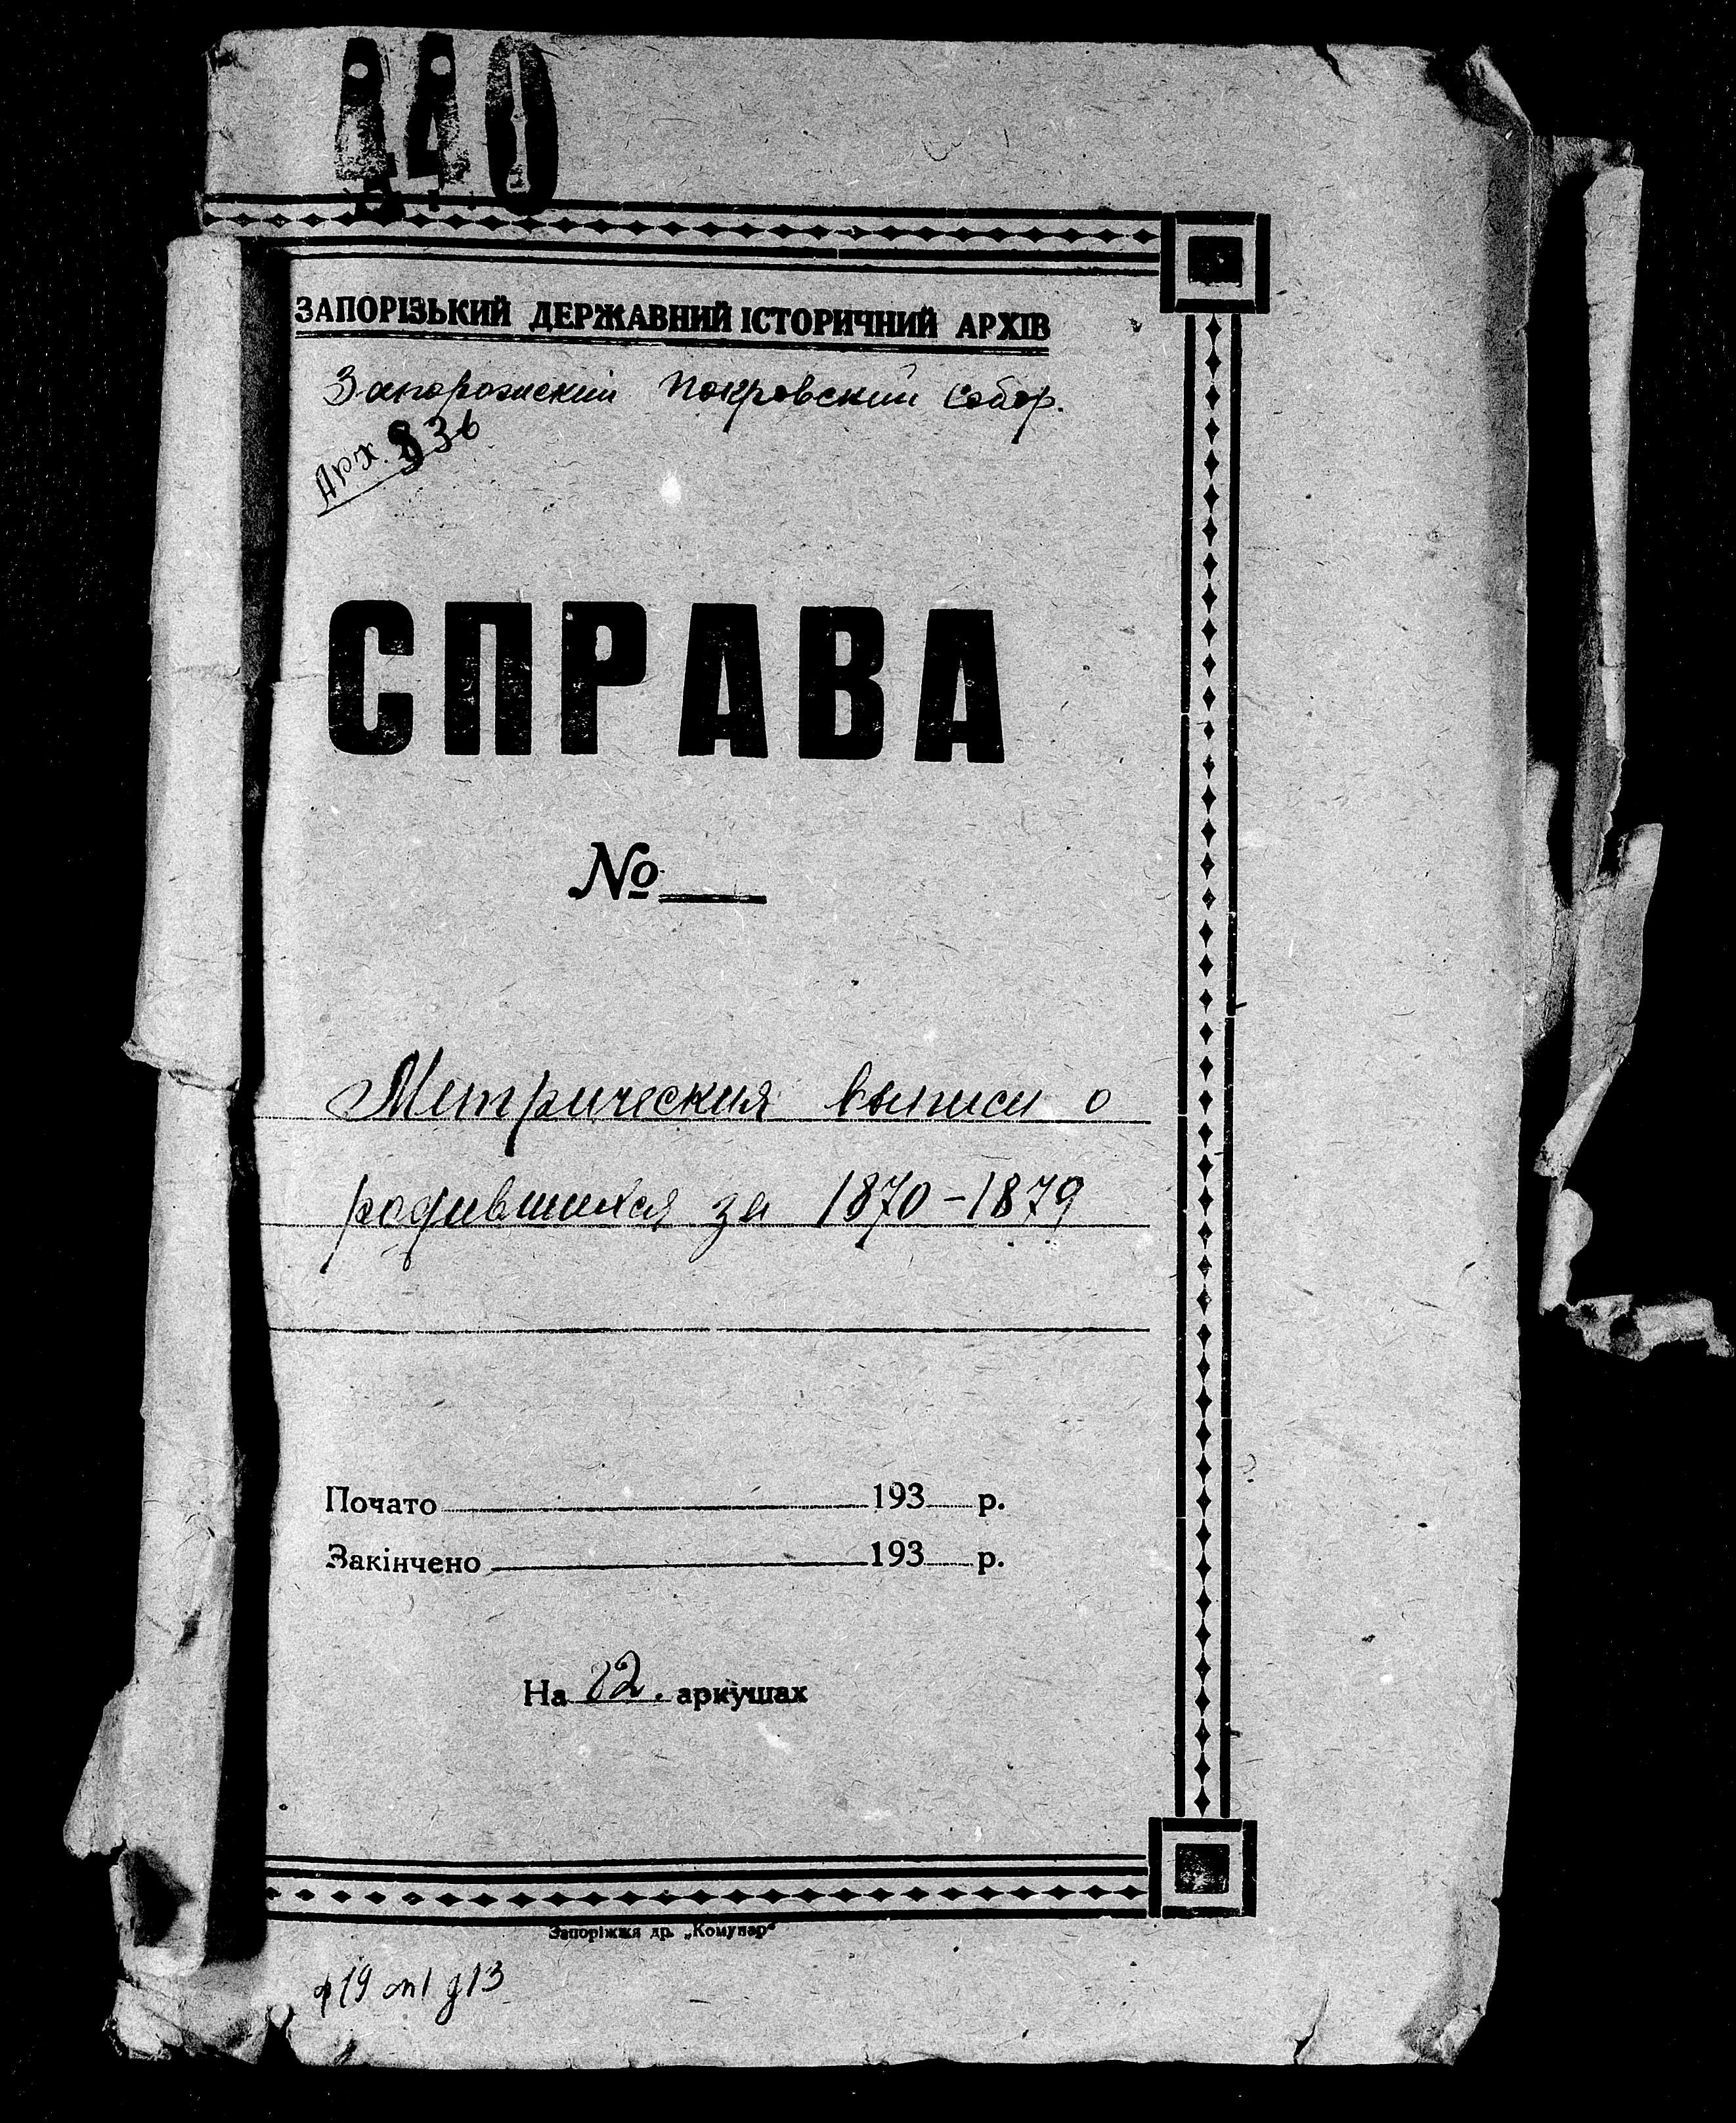 440
ЗАПОРІЗЬКИЙ ДЕРЖАВНИЙ ІСТОРИЧНИЙ АРХІВ
Запорожский Покровский собор.
Арх. 336
СПРАВА
№
Метрическия выписи о
родившихся за 1870-1879
Почато 193 р.
Закінчено 193 р.
На 82. аркушах
Запоріжжя др. „Комунар"
ф19 оп1 д13